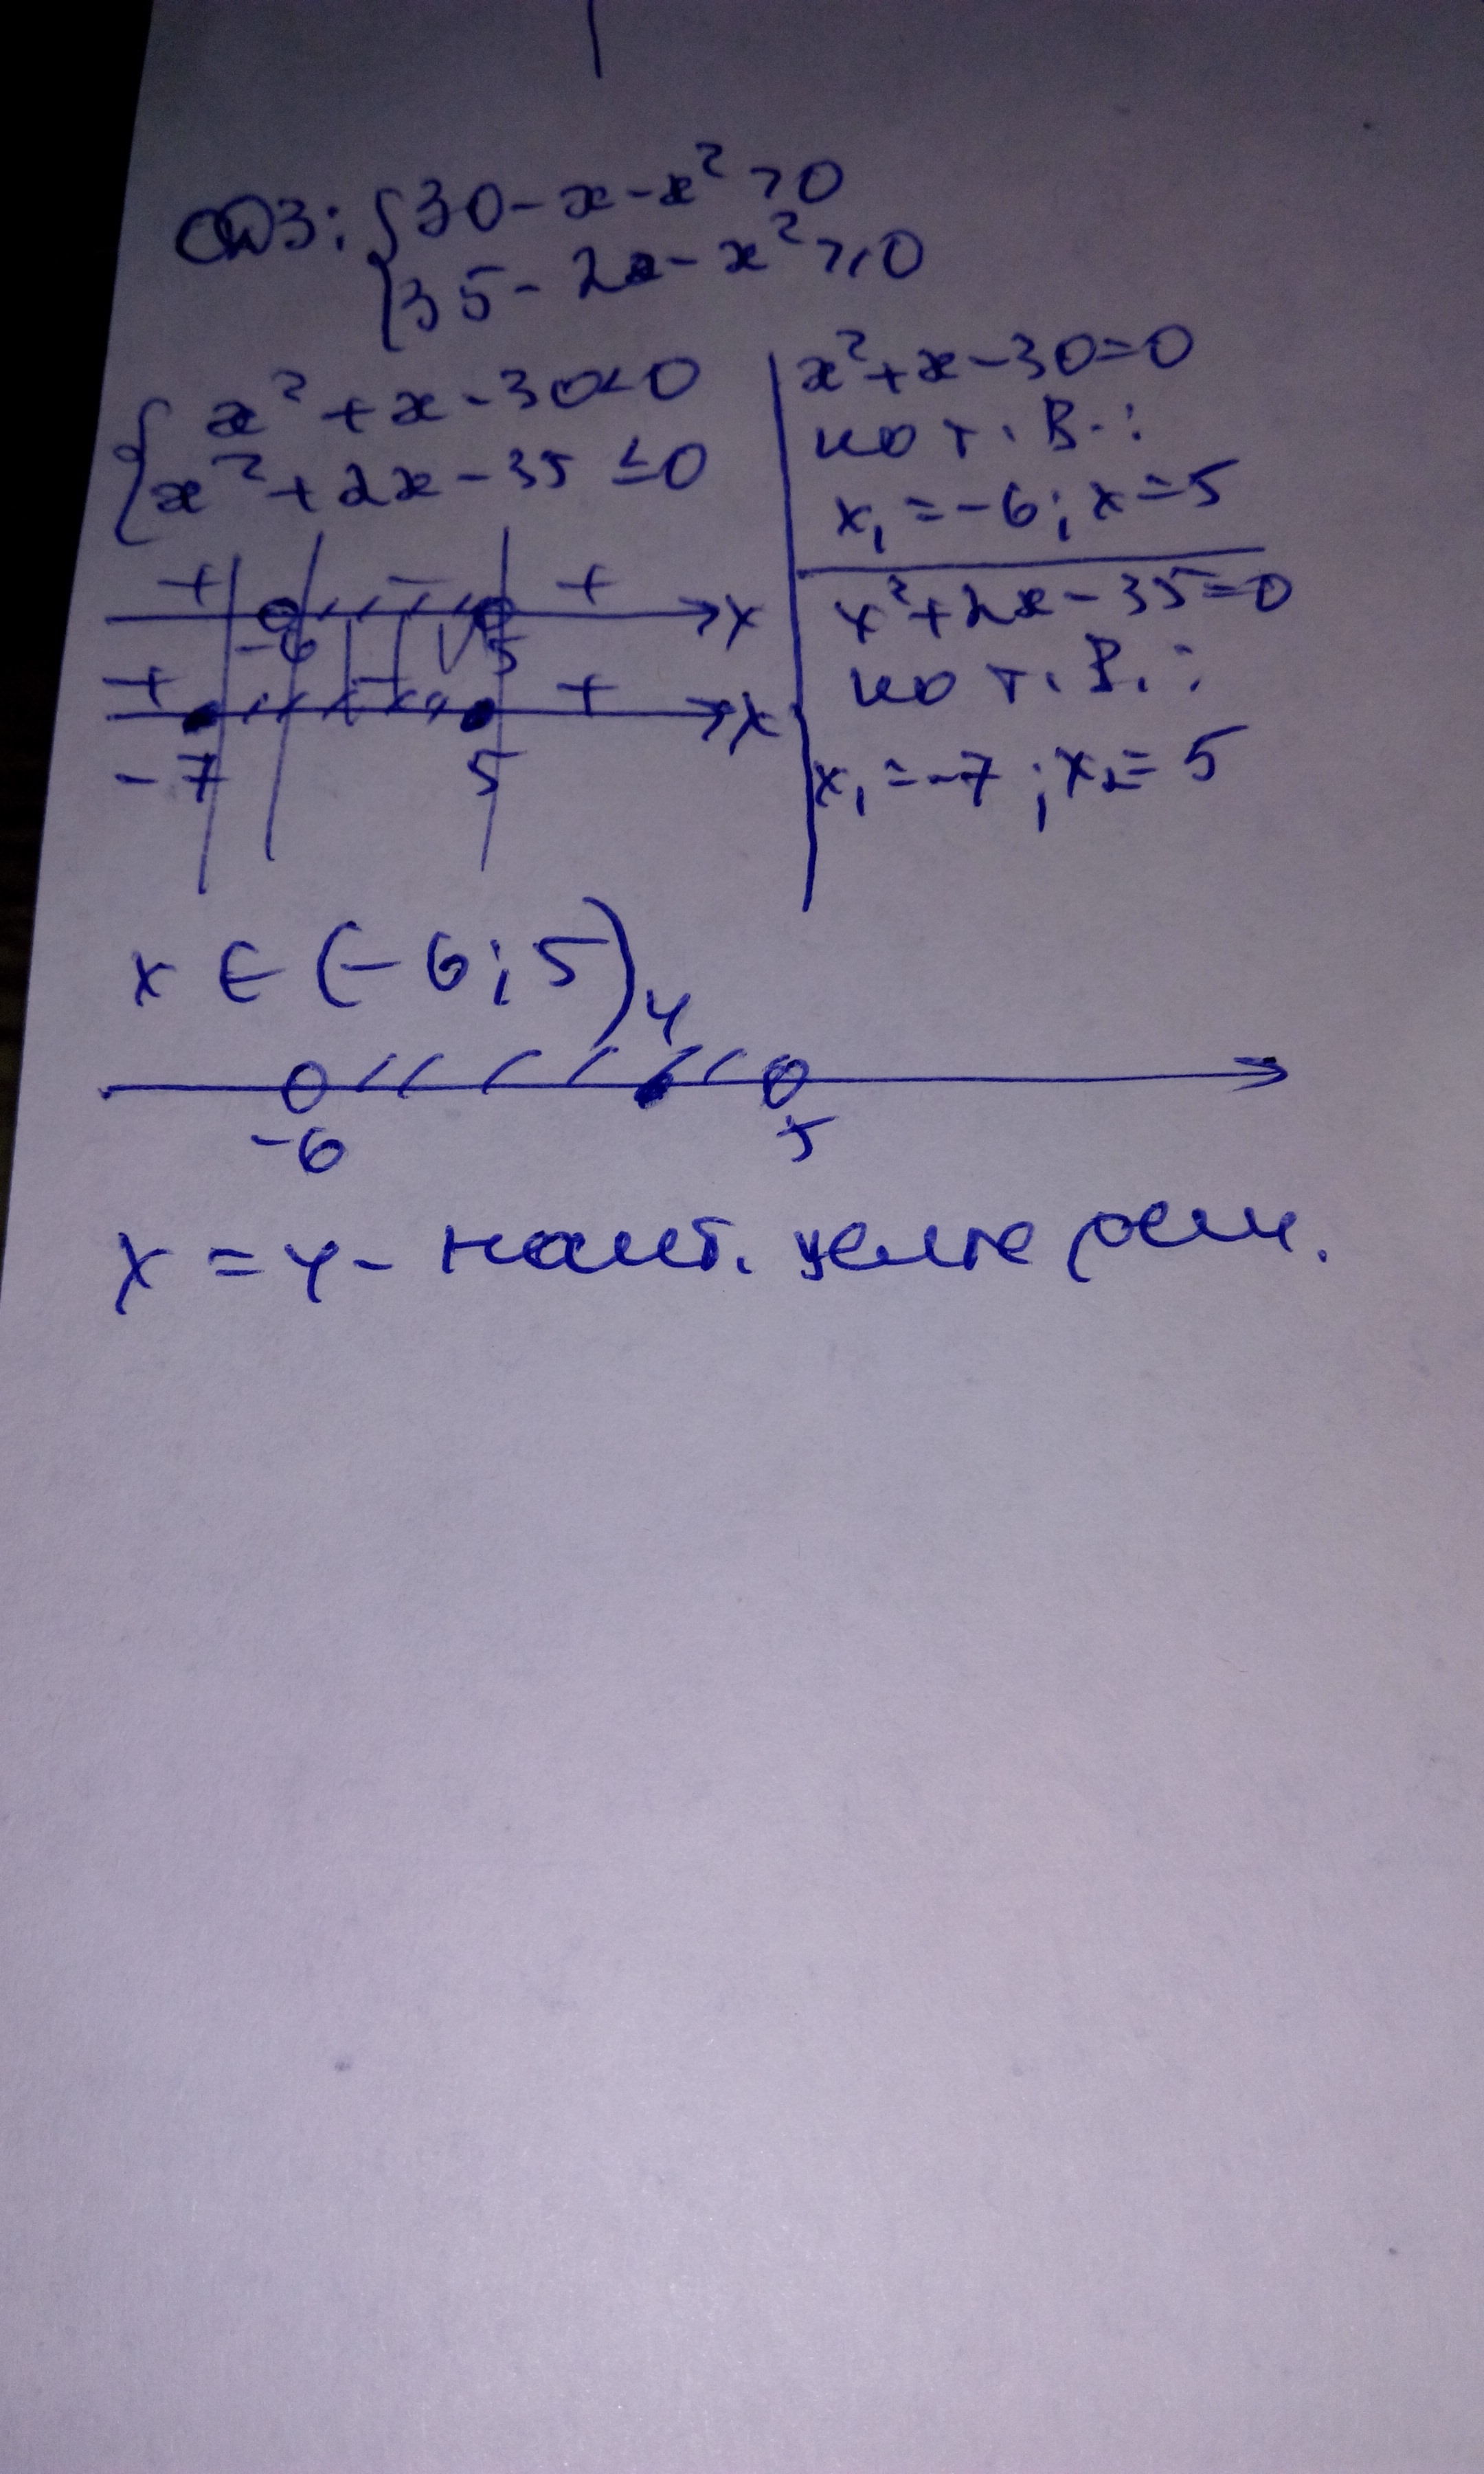 ОДЗ: { 30 - x - x² > 0
{ 35 - 2x - x² ≥ 0
{ x² + x - 30 < 0
{ x² + 2x - 35 ≤ 0
x² + x - 30 = 0
по т. В.:
x₁ = -6; x = 5
x² + 2x - 35 = 0
по т. В.:
x₁ = -7; x₂ = 5
+ - +
-6 5 x
+ - +
-7 5 x
x ∈ (-6; 5)
4
-6 5
x = 4 - наиб. целое реш.